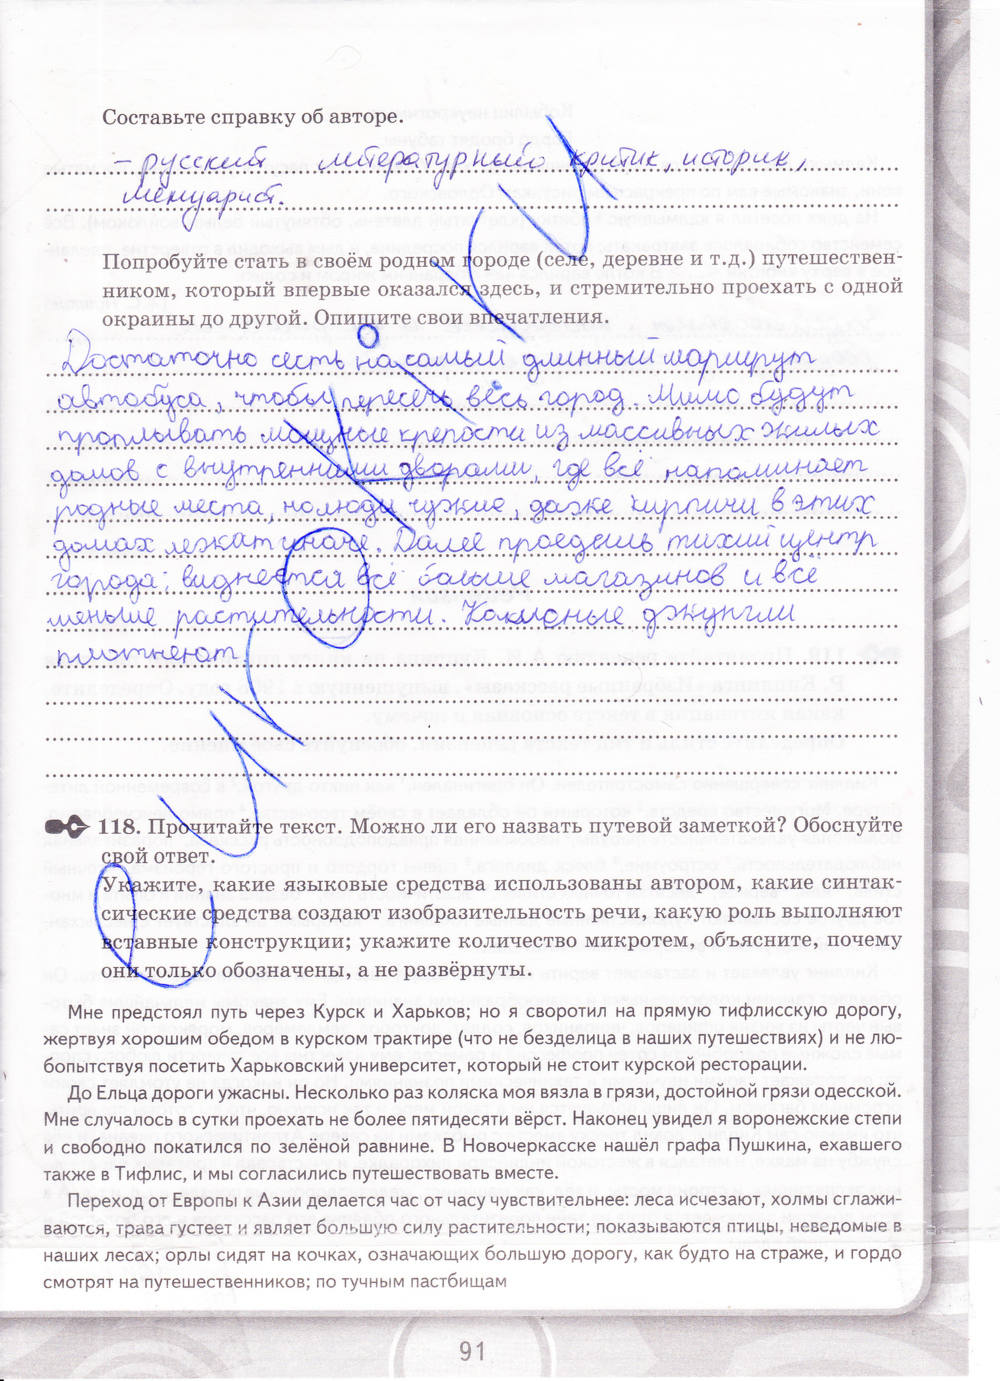 Составьте справку об авторе.
– русский литературный критик, историк,
мемуарист.
Попробуйте стать в своём родном городе (селе, деревне и т.д.) путешествен-
ником, который впервые оказался здесь, и стремительно проехать с одной
окраины до другой. Опишите свои впечатления.
Достаточно сесть на самый длинный маршрут
автобуса, чтобы пересечь весь город. Мимо будут
проплывать мощные крепости из массивных жилых
домов с внутренними дворами, где всё напоминает
родные места, но люди чужие, даже кирпичи в этих
домах лежат иначе. Далее проедешь тихий центр
города; виднеется всё больше магазинов и всё
меньше растительности. джунгли
плотнеют.
118. Прочитайте текст. Можно ли его назвать путевой заметкой? Обоснуйте
свой ответ.
Укажите, какие языковые средства использованы автором, какие синтак-
сические средства создают изобразительность речи, какую роль выполняют
вставные конструкции; укажите количество микротем, объясните, почему
они только обозначены, а не развёрнуты.
Мне предстоял путь через Курск и Харьков; но я своротил на прямую тифлисскую дорогу,
жертвуя хорошим обедом в курском трактире (что не безделица в наших путешествиях) и не лю-
бопытствуя посетить Харьковский университет, который не стоит курской ресторации.
До Ельца дороги ужасны. Несколько раз коляска моя вязла в грязи, достойной грязи одесской.
Мне случалось в сутки проехать не более пятидесяти вёрст. Наконец увидел я воронежские степи
и свободно покатился по зелёной равнине. В Новочеркасске нашёл графа Пушкина, ехавшего
также в Тифлис, и мы согласились путешествовать вместе.
Переход от Европы к Азии делается час от часу чувствительнее: леса исчезают, холмы сглажи-
ваются, трава густеет и являет большую силу растительности; показываются птицы, неведомые в
наших лесах; орлы сидят на кочках, означающих большую дорогу, как будто на страже, и гордо
смотрят на путешественников; по тучным пастбищам
91